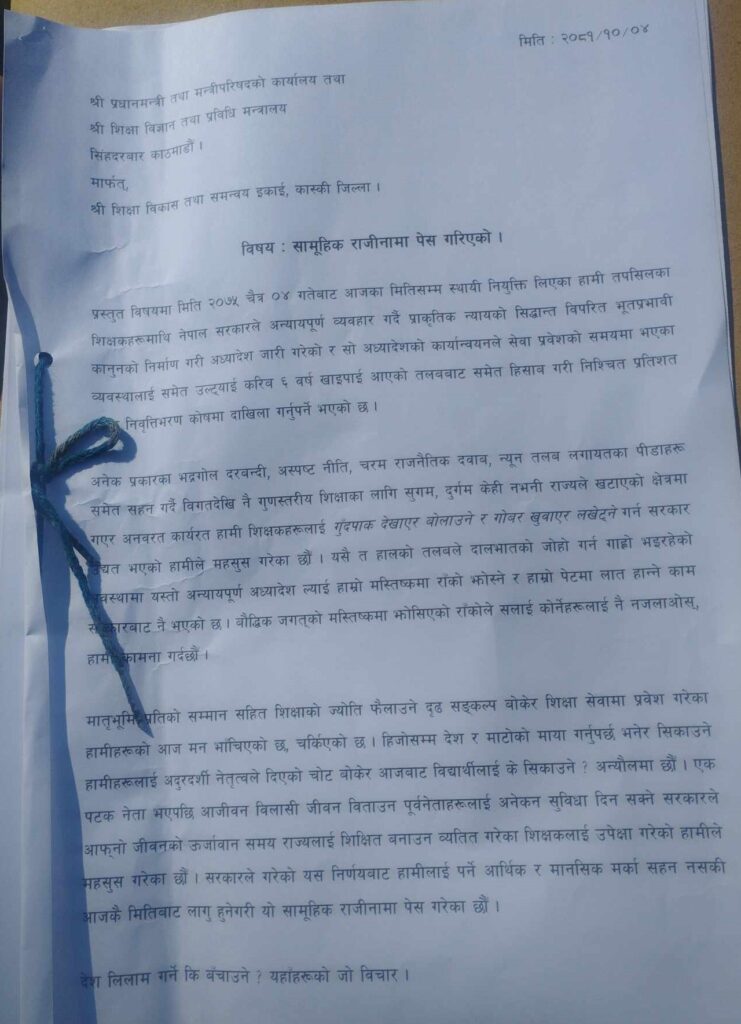 मिति : २०८१/१०/०४
श्री प्रधानमन्त्री तथा मन्त्रीपरिषदको कार्यालय तथा
श्री शिक्षा विज्ञान तथा प्रविधि मन्त्रालय
सिंहदरबार काठमाडौं ।
मार्फत्,
श्री शिक्षा विकास तथा समन्वय इकाई, कास्की जिल्ला ।
विषय : सामूहिक राजीनामा पेस गरिएको ।
प्रस्तुत विषयमा मिति २०७५ चैत्र ०४ गतेबाट आजका मितिसम्म स्थायी नियुक्ति लिएका हामी तपसिलका
शिक्षकहरूमाथि नेपाल सरकारले अन्यायपूर्ण व्यवहार गर्दै प्राकृतिक न्यायको सिद्धान्त विपरित भूतप्रभावी
कानुनको निर्माण गरी अध्यादेश जारी गरेको र सो अध्यादेशको कार्यान्वयनले सेवा प्रवेशको समयमा भएका
व्यवस्थालाई समेत उल्ट्याई करिव ६ वर्ष खाइपाई आएको तलबबाट समेत हिसाब गरी निश्चित प्रतिशत
निवृत्तिभरण कोषमा दाखिला गर्नुपर्ने भएको छ ।
अनेक प्रकारका भद्रगोल दरबन्दी, अस्पष्ट नीति, चरम राजनैतिक दबाब, न्यून तलब लगायतका पीडाहरू
समेत सहन गर्दै विगतदेखि नै गुणस्तरीय शिक्षाका लागि सुगम, दुर्गम केही नभनी राज्यले खटाएको क्षेत्रमा
गएर अनवरत कार्यरत हामी शिक्षकहरूलाई गुंदपाक देखाएर बोलाउने र गोबर खुवाएर लखेट्ने गर्न सरकार
उद्यत भएको हामीले महसुस गरेका छौं । यसै त हालको तलबले दालभातको जोहो गर्न गाह्रो भइरहेको
अवस्थामा यस्तो अन्यायपूर्ण अध्यादेश ल्याई हाम्रो मस्तिष्कमा राँको झोस्ने र हाम्रो पेटमा लात हान्ने काम
सरकारबाट नै भएको छ । बौद्धिक जगत्को मस्तिष्कमा झोसिएको राँकोले सलाई कोर्नेहरूलाई नै नजलाओस्,
हामी कामना गर्दछौं ।
मातृभूमि प्रतिको सम्मान सहित शिक्षाको ज्योति फैलाउने दृढ सङ्कल्प बोकेर शिक्षा सेवामा प्रवेश गरेका
हामीहरूको आज मन भाँचिएको छ, चर्किएको छ । हिजोसम्म देश र माटोको माया गर्नुपर्छ भनेर सिकाउने
हामीहरूलाई अदुरदर्शी नेतृत्वले दिएको चोट बोकेर आजबाट विद्यार्थीलाई के सिकाउने ? अन्यौलमा छौं । एक
पटक नेता भएपछि आजीवन विलासी जीवन विताउन पूर्वनेताहरूलाई अनेकन सुविधा दिन सक्ने सरकारले
आफ्नो जीवनको ऊर्जावान समय राज्यलाई शिक्षित बनाउन व्यतित गरेका शिक्षकलाई उपेक्षा गरेको हामीले
महसुस गरेका छौं । सरकारले गरेको यस निर्णयबाट हामीलाई पर्ने आर्थिक र मानसिक मर्का सहन नसकी
आजकै मितिबाट लागु हुनेगरी यो सामूहिक राजीनामा पेस गरेका छौं ।
देश लिलाम गर्ने कि बँचाउने ? यहाँहरूको जो विचार ।